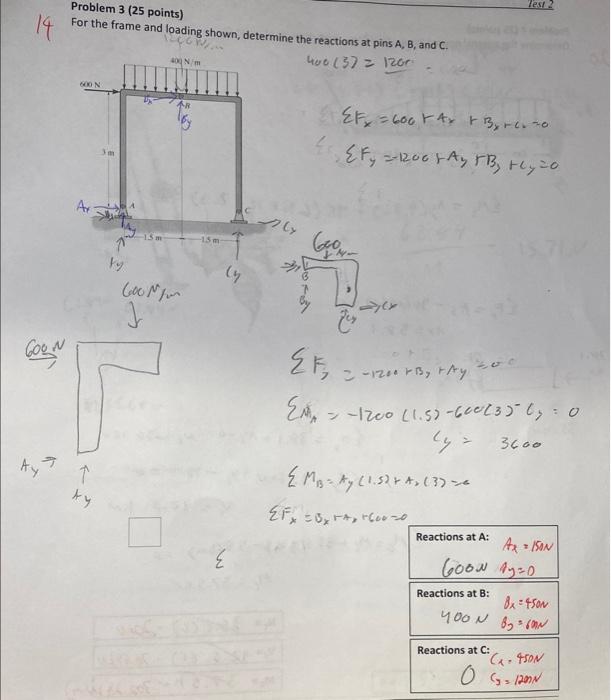 Test 2
14
Problem 3 (25 points)
For the frame and loading shown, determine the reactions at pins A, B, and C.
1200 N/m
400 (3) = 1200
400 N/m
600 N
Bx
B
By
ΣFx = 600 + Ax + Bx + Cx = 0
ΣFy = -1200 + Ay + By + Cy = 0
3 m
Ax
A
C
Cx
Ay
1.5 m
1.5 m
Ay
Cy
600
B
By
Cx
Cy
600 N/m
600 N
ΣFy = -1200 + By + Ay = 0
ΣMA = -1200 (1.5) - 600(3) - Cy = 0
Cy = 3600
Ay
Ay
ΣMB = Ay (1.5) + Ax (3) = 0
ΣFx = Bx + Ax + 600 = 0
Σ
Reactions at A:
Ax = 150N
600N
Ay = 0
Reactions at B:
Bx = 450N
400 N
By = 600N
Reactions at C:
Cx = 450N
0
Cy = 1200N